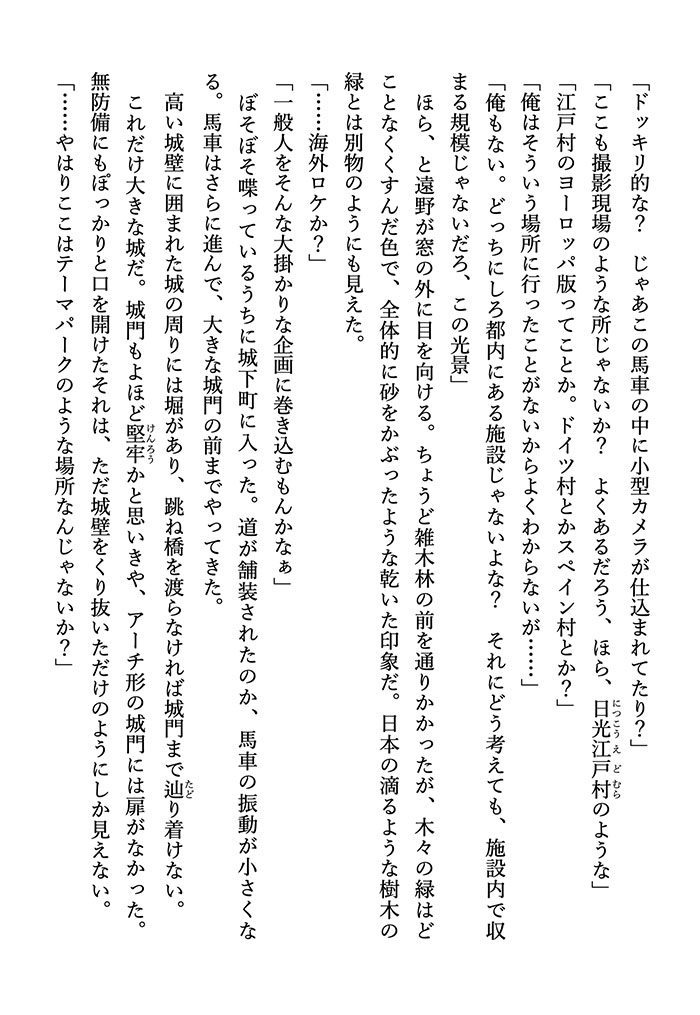 「ドッキリ的な？　じゃあこの馬車の中に小型カメラが仕込まれてたり？」
「ここも撮影現場のような所じゃないか？　よくあるだろう、ほら、日光江戸村のような」
「江戸村のヨーロッパ版ってことか。ドイツ村とかスペイン村とか？」
「俺はそういう場所に行ったことがないからよくわからないが……」
「俺もない。どっちにしろ都内にある施設じゃないよな？　それにどう考えても、施設内で収
まる規模じゃないだろ、この光景」
　ほら、と遠野が窓の外に目を向ける。ちょうど雑木林の前を通りかかったが、木々の緑はど
ことなくくすんだ色で、全体的に砂をかぶったような乾いた印象だ。日本の滴るような樹木の
緑とは別物のようにも見えた。
「……海外ロケか？」
「一般人をそんな大掛かりな企画に巻き込むもんかなぁ」
　ぼそぼそ喋っているうちに城下町に入った。道が舗装されたのか、馬車の振動が小さくな
る。馬車はさらに進んで、大きな城門の前までやってきた。
　高い城壁に囲まれた城の周りには堀があり、跳ね橋を渡らなければ城門まで辿り着けない。
　これだけ大きな城だ。城門もよほど堅牢かと思いきや、アーチ形の城門には扉がなかった。
無防備にもぽっかりと口を開けたそれは、ただ城壁をくり抜いただけのようにしか見えない。
「……やはりここはテーマパークのような場所なんじゃないか？」